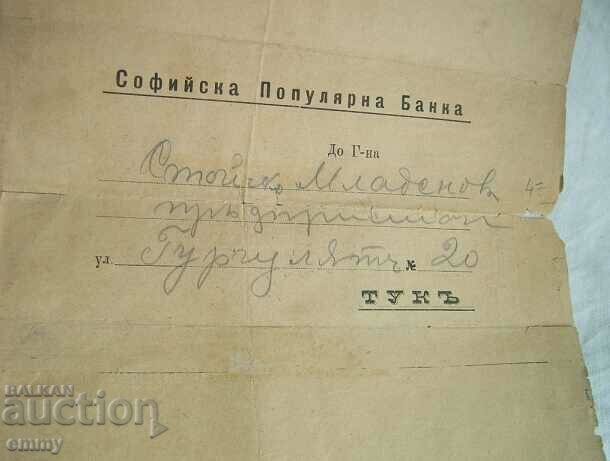 Софийска Популярна Банка
До Г-на
Стойко Младеновъ 4=
предприемач
ул. Гургулятъ № 20
ТУКЪ
BALKAN
auction
emmy